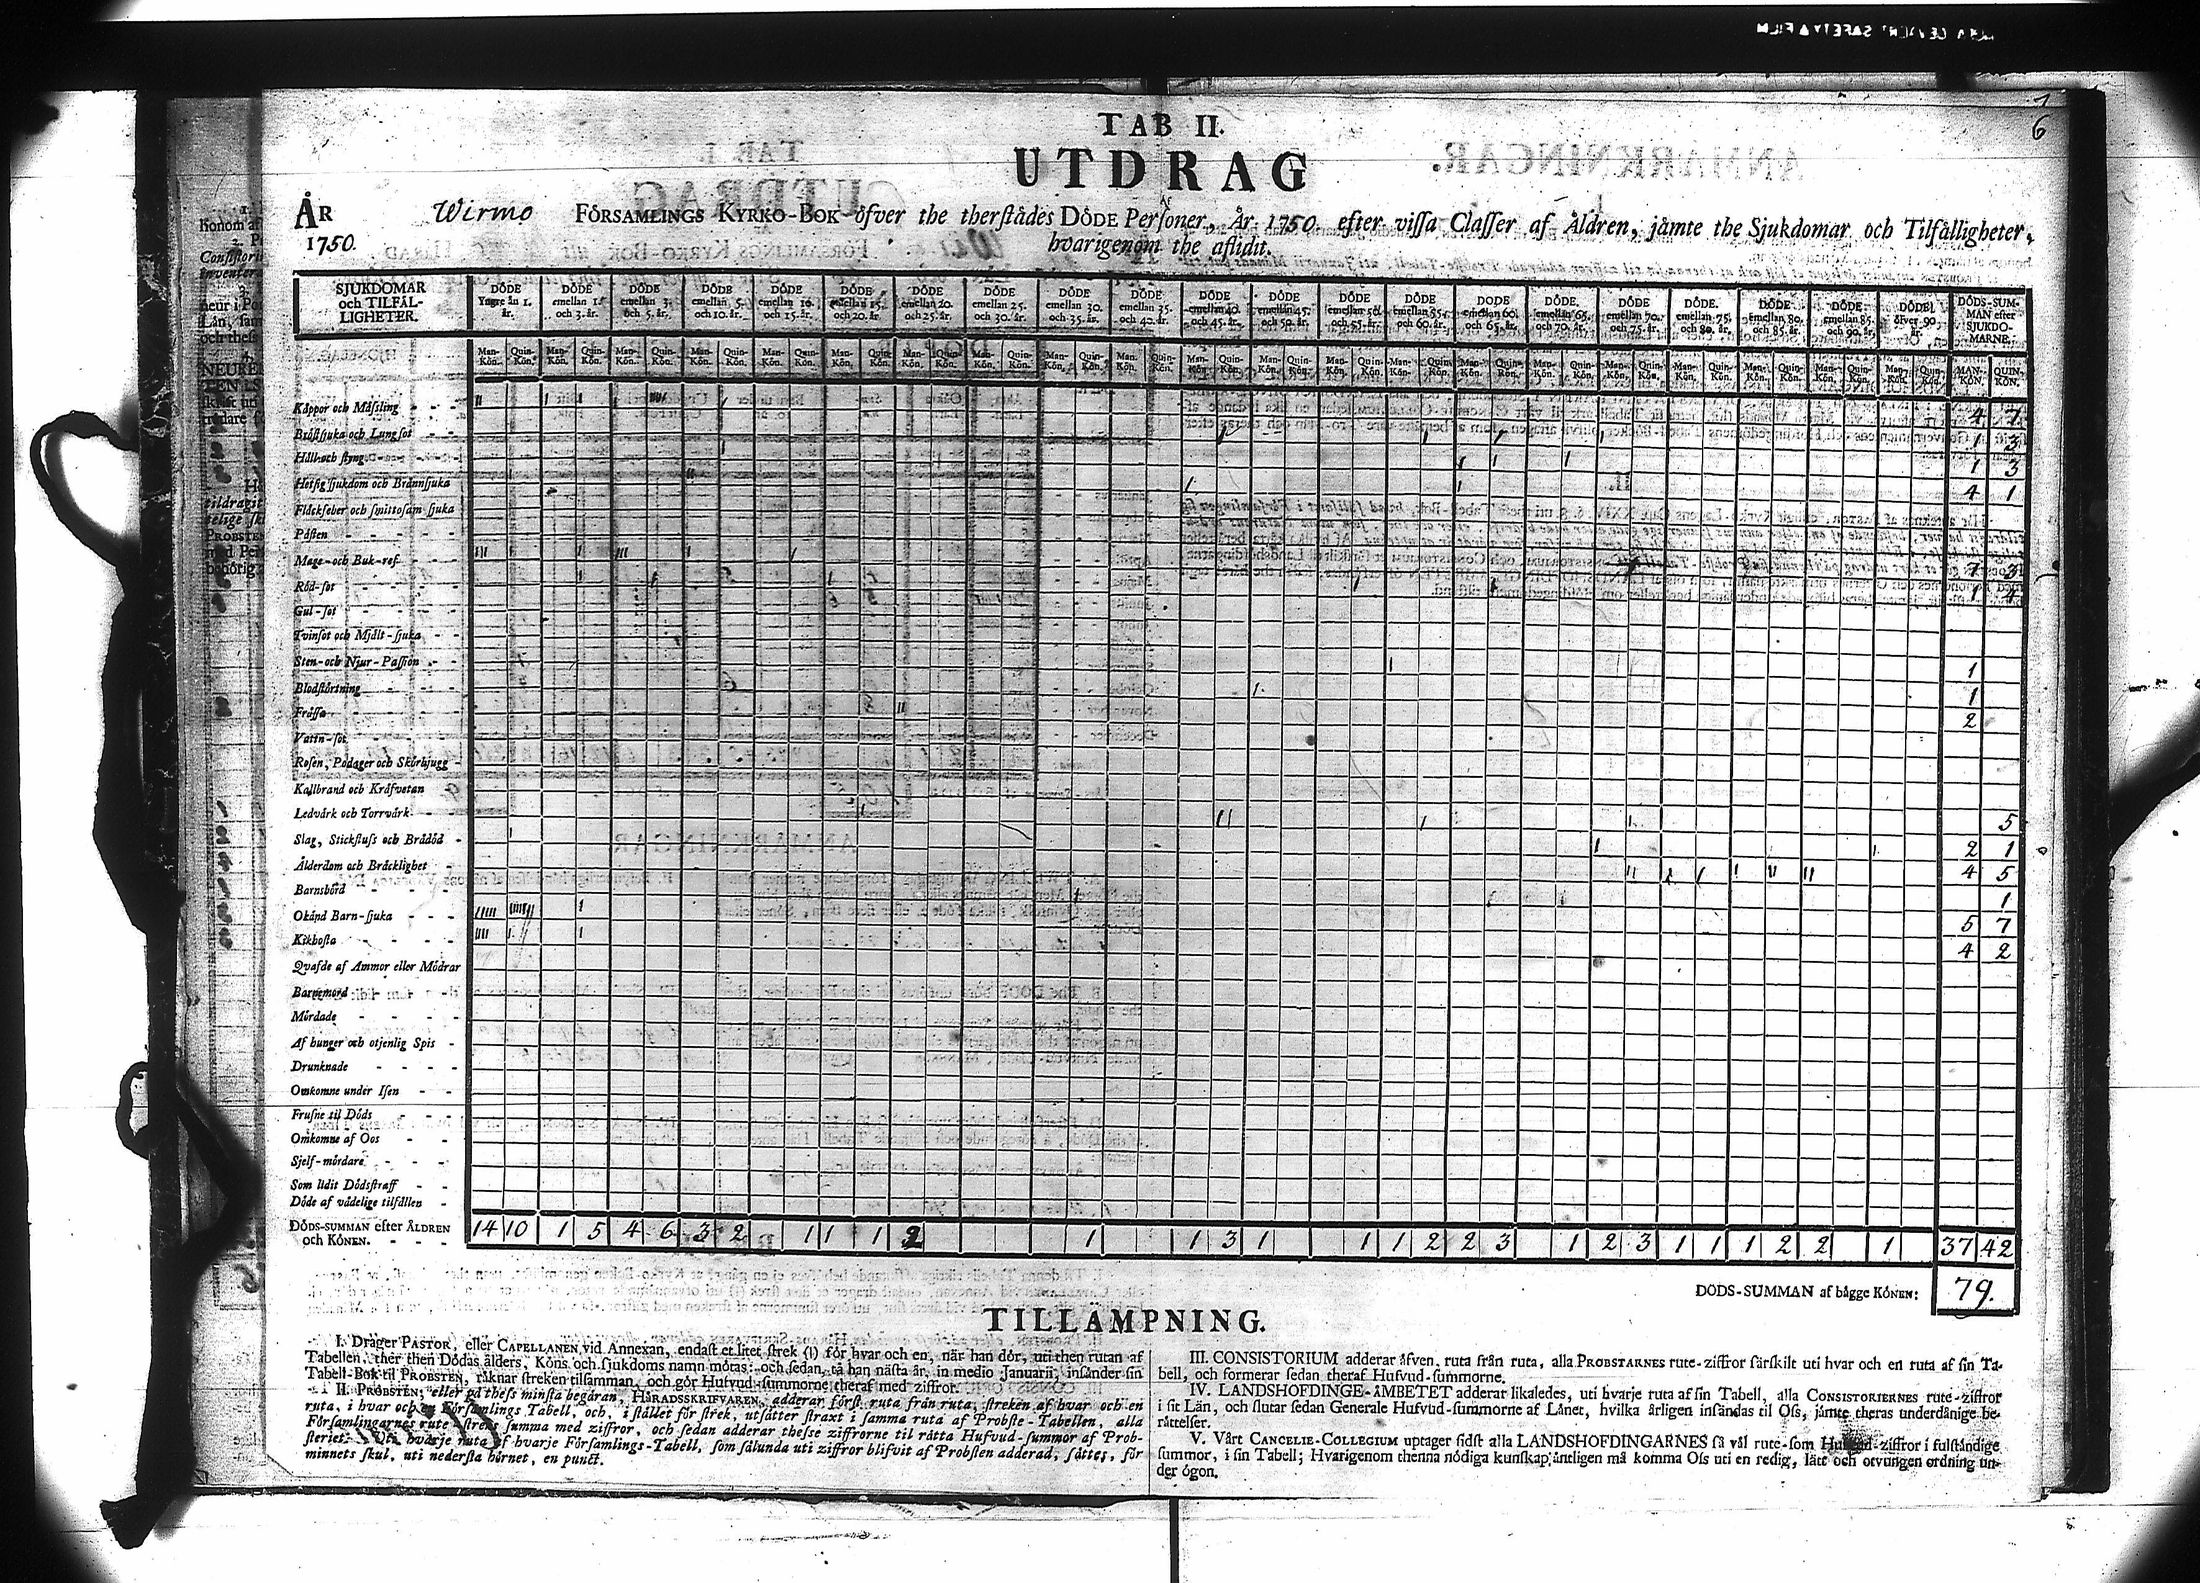 TAB II.
UTDRAG
6
ÅR
1750.
Wirmo FÖRSAMLINGS KYRKO-BOK öfver the therstädes DÖDE Personer, År 1750 efter vissa Classer af Åldren, jämte the Sjukdomar och Tilfälligheter,
hvarigenom the aflidit.
SJUKDOMAR och TILFÄLLIGHETER.
DÖDE Yngre än 1. år.
DÖDE emellan 1. och 3. år.
DÖDE emellan 3. och 5. år.
DÖDE emellan 5. och 10. år.
DÖDE emellan 10. och 15. år.
DÖDE emellan 15. och 20. år.
DÖDE emellan 20. och 25. år.
DÖDE emellan 25. och 30. år.
DÖDE emellan 30. och 35. år.
DÖDE emellan 35. och 40. år.
DÖDE emellan 40. och 45. år.
DÖDE emellan 45. och 50. år.
DÖDE emellan 50. och 55. år.
DÖDE emellan 55. och 60. år.
DÖDE emellan 60. och 65. år.
DÖDE. emellan 65. och 70. år.
DÖDE emellan 70. och 75. år.
DÖDE. emellan 75. och 80. år.
DÖDE emellan 80. och 85. år.
DÖDE emellan 85. och 90. år.
DÖDE öfver 90. år.
DÖDS-SUMMAN efter SJUKDOMARNE.
MAN-KÖN. QUIN-KÖN.
Koppor och Mässling 4 7
Bröstsjuka och Lungsot 1 3
Håll och styng 1 3
Hetsig sjukdom och Brännsjuka 4 1
Fläckfeber och smittosam sjuka
Påsten
Mage- och Buk-ref 7 3
Röd-sot 1 4
Gul-sot
Tvinsot och Mjält-sjuka
Sten- och Njur-Passion 1
Blodstörtning 1
Frässa 2
Vattn-sot
Rosen, Podager och Skörbjugg
Kallbrand och Kräfvetan
Ledvärk och Torrvärk 5
Slag, Stickfluss och Brådöd 2 1
Ålderdom och Bräcklighet 4 5
Barnsbörd 1
Okänd Barn-sjuka 5 7
Kikhosta 4 2
Qvafde af Ammor eller Mödrar
Barnemord
Mördade
Af hunger och otjenlig Spis
Drunknade
Omkomne under Isen
Frusne til Döds
Omkomne af Oos
Sjelf-mördare
Som lidit Dödsstraff
Döde af vådelige tilfällen
DÖDS-SUMMAN efter ÅLDREN och KÖNEN. 14 10 1 5 4 6 3 2 1 1 1 2 1 1 3 1 1 1 2 2 3 1 2 3 1 1 1 2 2 1 37 42
DÖDS-SUMMAN af bägge KÖNEN: 79.
TILLÄMPNING.
I. Drager PASTOR, eller CAPELLANEN vid Annexan, endast et litet strek (|) för hvar och en, när han dör, uti then rutan af
Tabellen, ther then Dödas ålders, Köns och sjukdoms namn mötas: och sedan, tå han nästa år, in medio Januarii, insänder sin
Tabell-Bok til PROBSTEN, räknar streken tilsamman, och gör Hufvud-summorne theraf med ziffror.
II. PROBSTEN, eller på thess minsta begäran, HÄRADSSKRIFVAREN, adderar först ruta från ruta, streken af hvar och en
ruta, i hvar och en Församlings Tabell, och, i stället för strek, utsätter straxt i samma ruta af Probste-Tabellen, alla
Församlingarnes rute-streks summa med ziffror, och sedan adderar thesse ziffrorne til rätta Hufvud-summor af Prob-
steriet. Uti hvarje ruta af hvarje Församlings-Tabell, som sålunda uti ziffror blifvit af Probsten adderad, sättes, för
minnets skul, uti nedersta hörnet, en punct.
III. CONSISTORIUM adderar äfven, ruta från ruta, alla PROBSTARNES rute-ziffror särskilt uti hvar och en ruta af sin Ta-
bell, och formerar sedan theraf Hufvud-summorne.
IV. LANDSHOFDINGE-ÄMBETET adderar likaledes, uti hvarje ruta af sin Tabell, alla CONSISTORIERNES rute-ziffror
i sit Län, och slutar sedan Generale Hufvud-summorne af Länet, hvilka årligen insändas til Oss, jämte theras underdånige be-
rättelser.
V. Vårt CANCELIE-COLLEGIUM uptager sidst alla LANDSHOFDINGARNES så väl rute-som Hufvud-ziffror i fulständige
summor, i sin Tabell; Hvarigenom thenna nödiga kunskap äntligen må komma Oss uti en redig, lätt och otvungen ordning un-
der ögon.